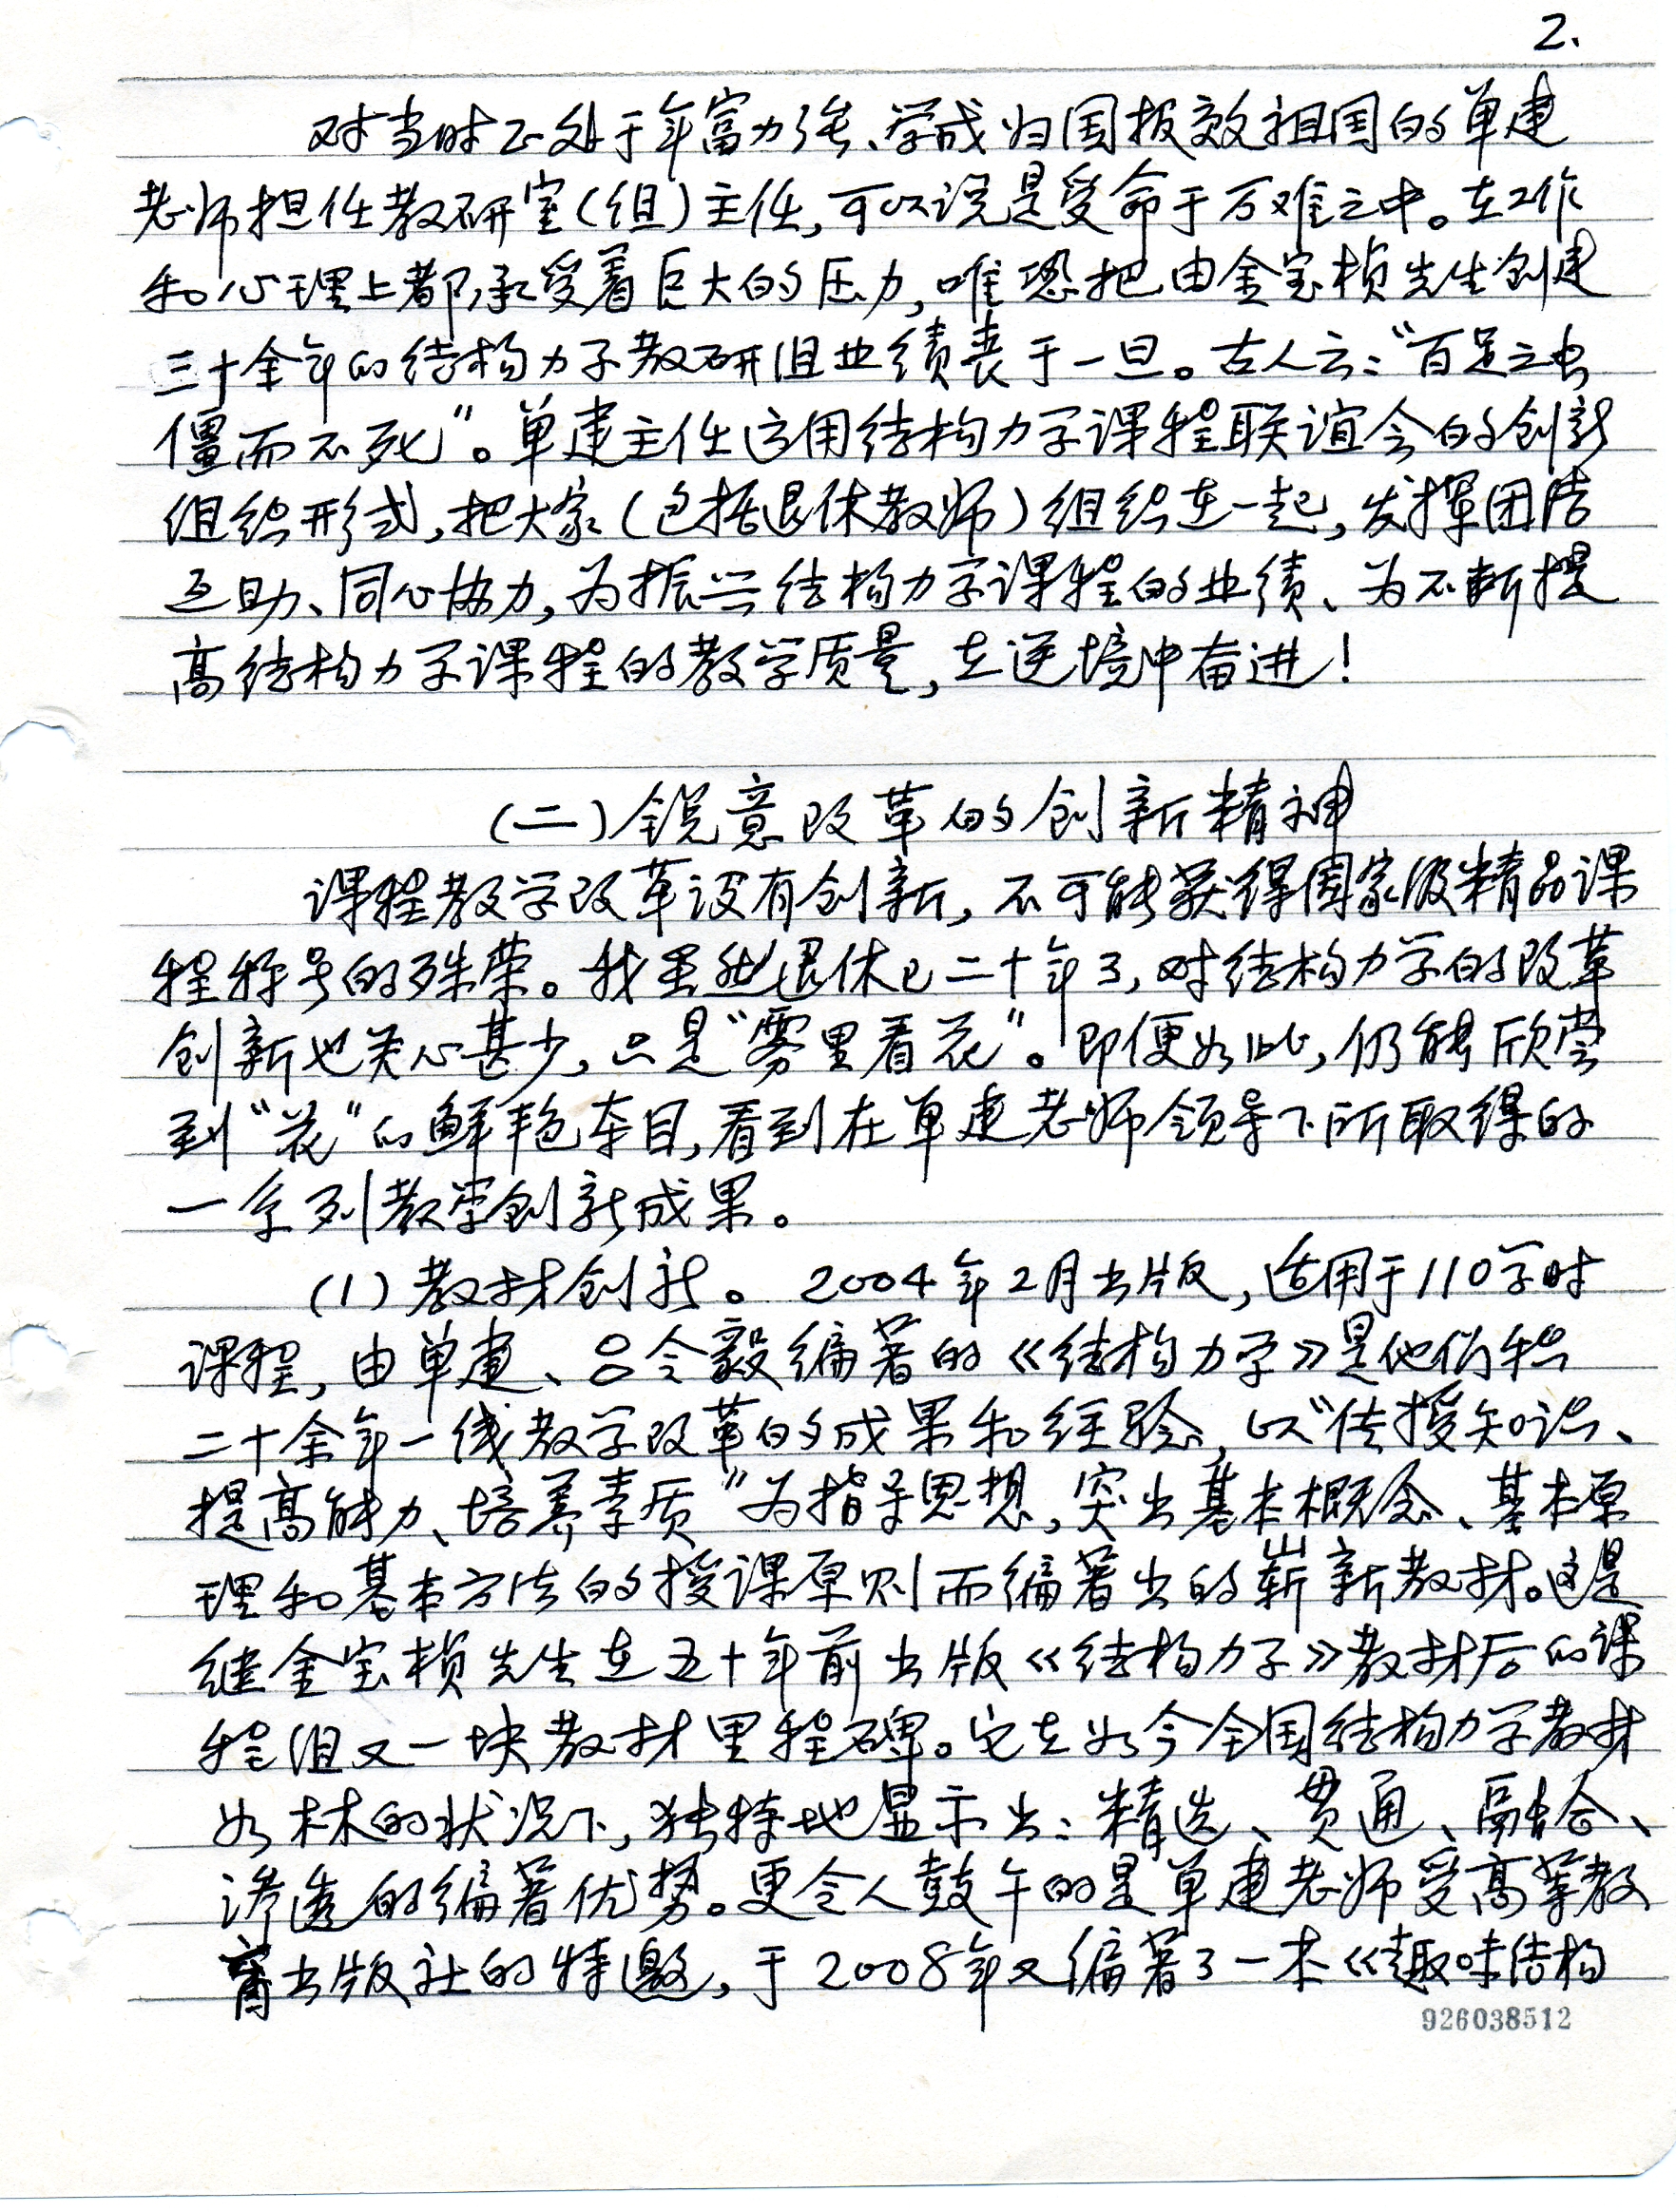 2.
对当时正处于年富力强、学成归国报效祖国的单建
老师担任教研室(组)主任,可以说是受命于万难之中。在工作
和心理上都承受着巨大的压力,唯恐把由金宝桢先生创建
三十余年的结构力学教研组业绩丧于一旦。古人云:“百足之虫
僵而不死”。单建主任运用结构力学课程联谊会的创新
组织形式,把大家(包括退休教师)组织在一起,发挥团结
互助、同心协力,为振兴结构力学课程的业绩、为不断提
高结构力学课程的教学质量,在逆境中奋进!
(二)锐意改革的创新精神
课程教学改革没有创新,不可能获得国家级精品课
程称号的殊荣。我虽然退休已二十年了,对结构力学的改革
创新也关心甚少,只是“雾里看花”。即便如此,仍能欣赏
到“花”的鲜艳夺目,看到在单建老师领导下所取得的
一系列教学创新成果。
(1)教材创新。2004年2月出版,适用于110学时
课程,由单建、吕令毅编著的《结构力学》是他们积
二十余年一线教学改革的成果和经验,以“传授知识、
提高能力、培养素质”为指导思想,突出基本概念、基本原
理和基本方法的授课原则而编著出的崭新教材。这是
继金宝桢先生在五十年前出版《结构力学》教材后的课
程组又一块教材里程碑。它在如今全国结构力学教材
如林的状况下,独特地显示出:精选、贯通、融合、
渗透的编著优势。更令人鼓午的是单建老师受高等教
育出版社的特邀,于2008年又编著了一本《趣味结构
926038512